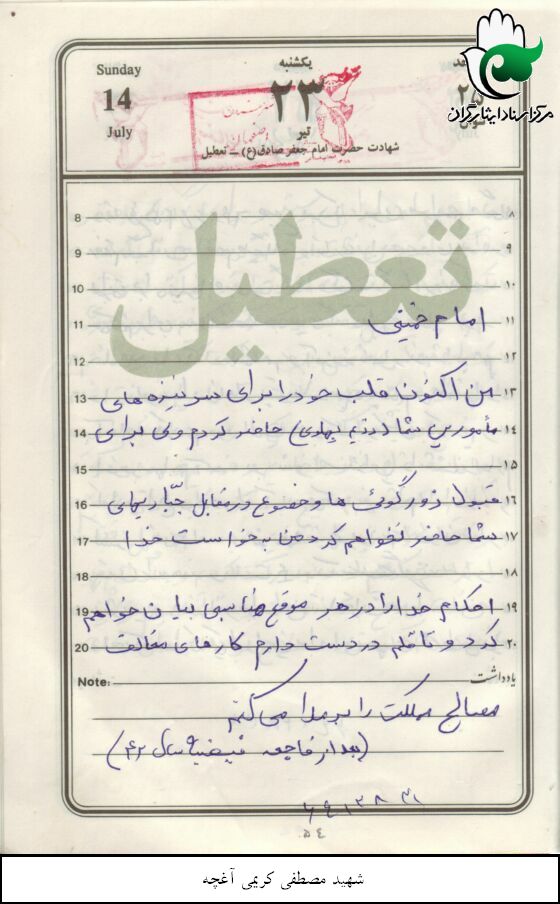 مرکز اسناد ایثارگران
Sunday
14
July
یکشنبه
۲۳
تیر
شهادت حضرت امام جعفر صادق (ع) ــ تعطیل
۲۵
تعطیل
8 ۸
9 ۹
10 ۱۰
11 ۱۱ امام خمینی
12 ۱۲
13 ۱۳ من اکنون قلب خود را برای سرنیزه های
14 ۱۴ مأمورین شما (رژیم پهلوی) حاضر کردم ولی برای
15 ۱۵
16 ۱۶ قبول زورگوئی ها و خضوع در مقابل جبّاریهای
17 ۱۷ شما حاضر نخواهم کرد من به خواست خدا
18 ۱۸
19 ۱۹ احکام خدا را در هر موقع مناسبی بیان خواهم
20 ۲۰ کرد و تا قلم در دست دارم کارهای مخالف
Note: یادداشت
مصالح مملکت را برملا می کنم
(بعد از فاجعه فیضیه سال ۴۲)
۵۴
شهید مصطفی کریمی آغچه